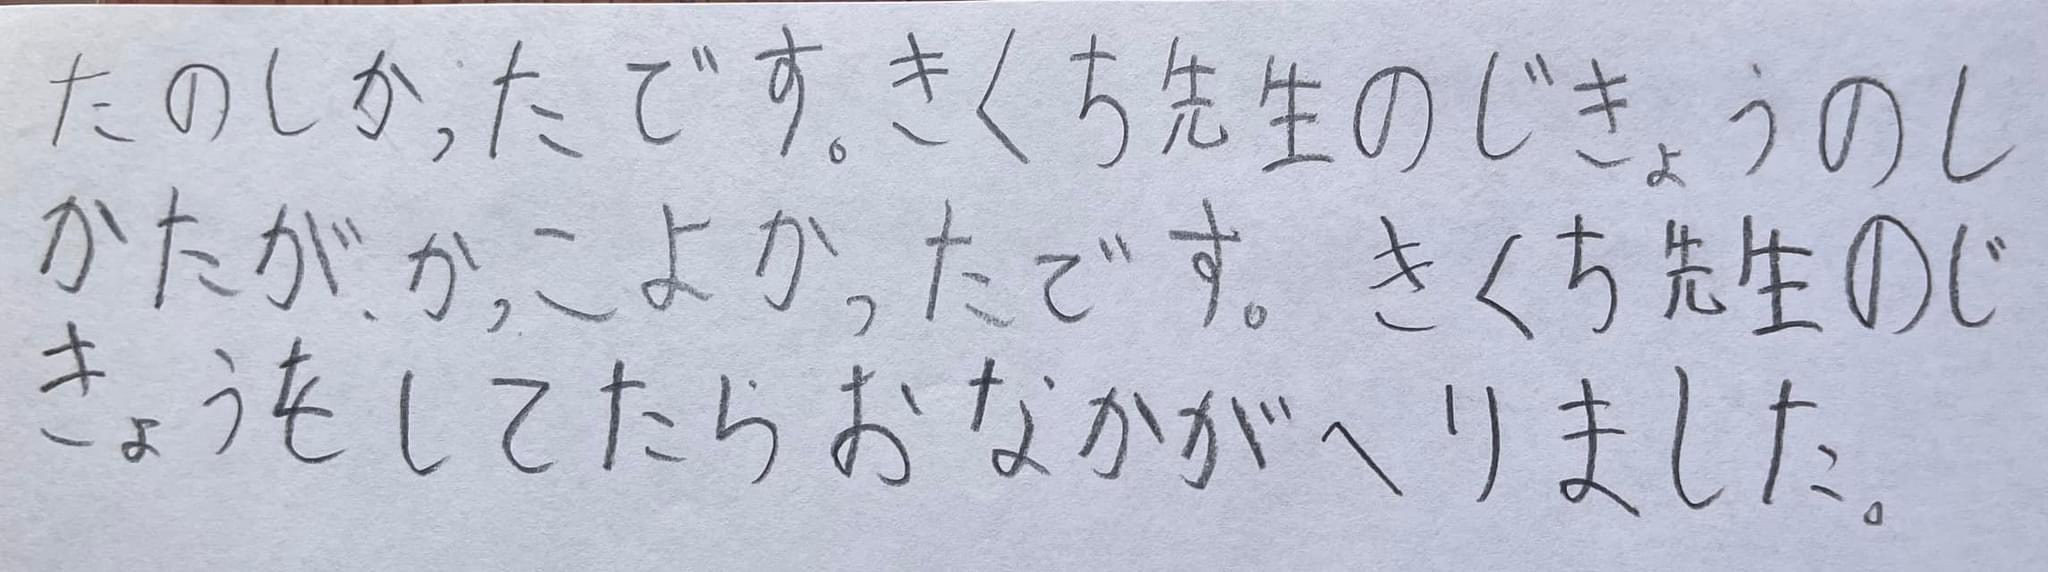 たのしかったです。きくち先生のじきょうのし
かたが、かっこよかったです。きくち先生のじ
きょうをしてたらおなかがへりました。